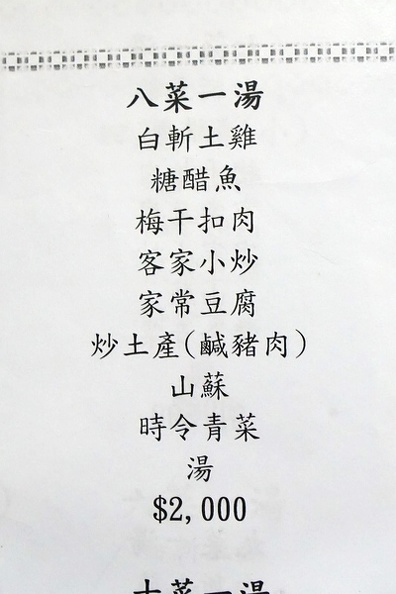 八菜一湯
白斬土雞
糖醋魚
梅干扣肉
客家小炒
家常豆腐
炒土產(鹹豬肉)
山蘇
時令青菜
湯
$2,000
十菜一湯